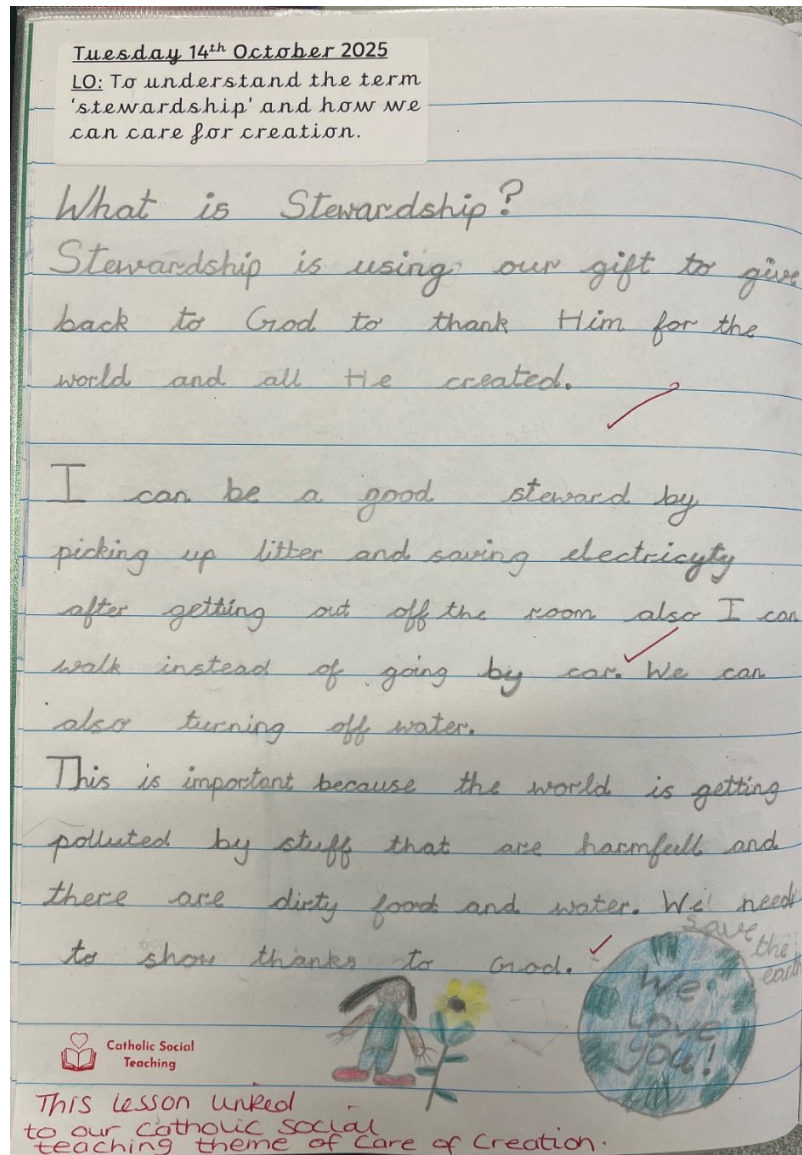 Tuesday 14th October 2025
LO: To understand the term
'stewardship' and how we
can care for creation.
What is Stewardship?
Stewardship is using our gift to give
back to God to thank Him for the
world and all He created.
I can be a good steward by
picking up litter and saving electricyty
after getting out off the room also I can
walk instead of going by car. We can
also turning off water.
This is important because the world is getting
polluted by stuff that are harmfull and
there are dirty food and water. We need
to show thanks to God.
save
the
earth
We
Love
you!
Catholic Social
Teaching
This lesson linked
to our Catholic social
teaching theme of Care of Creation.